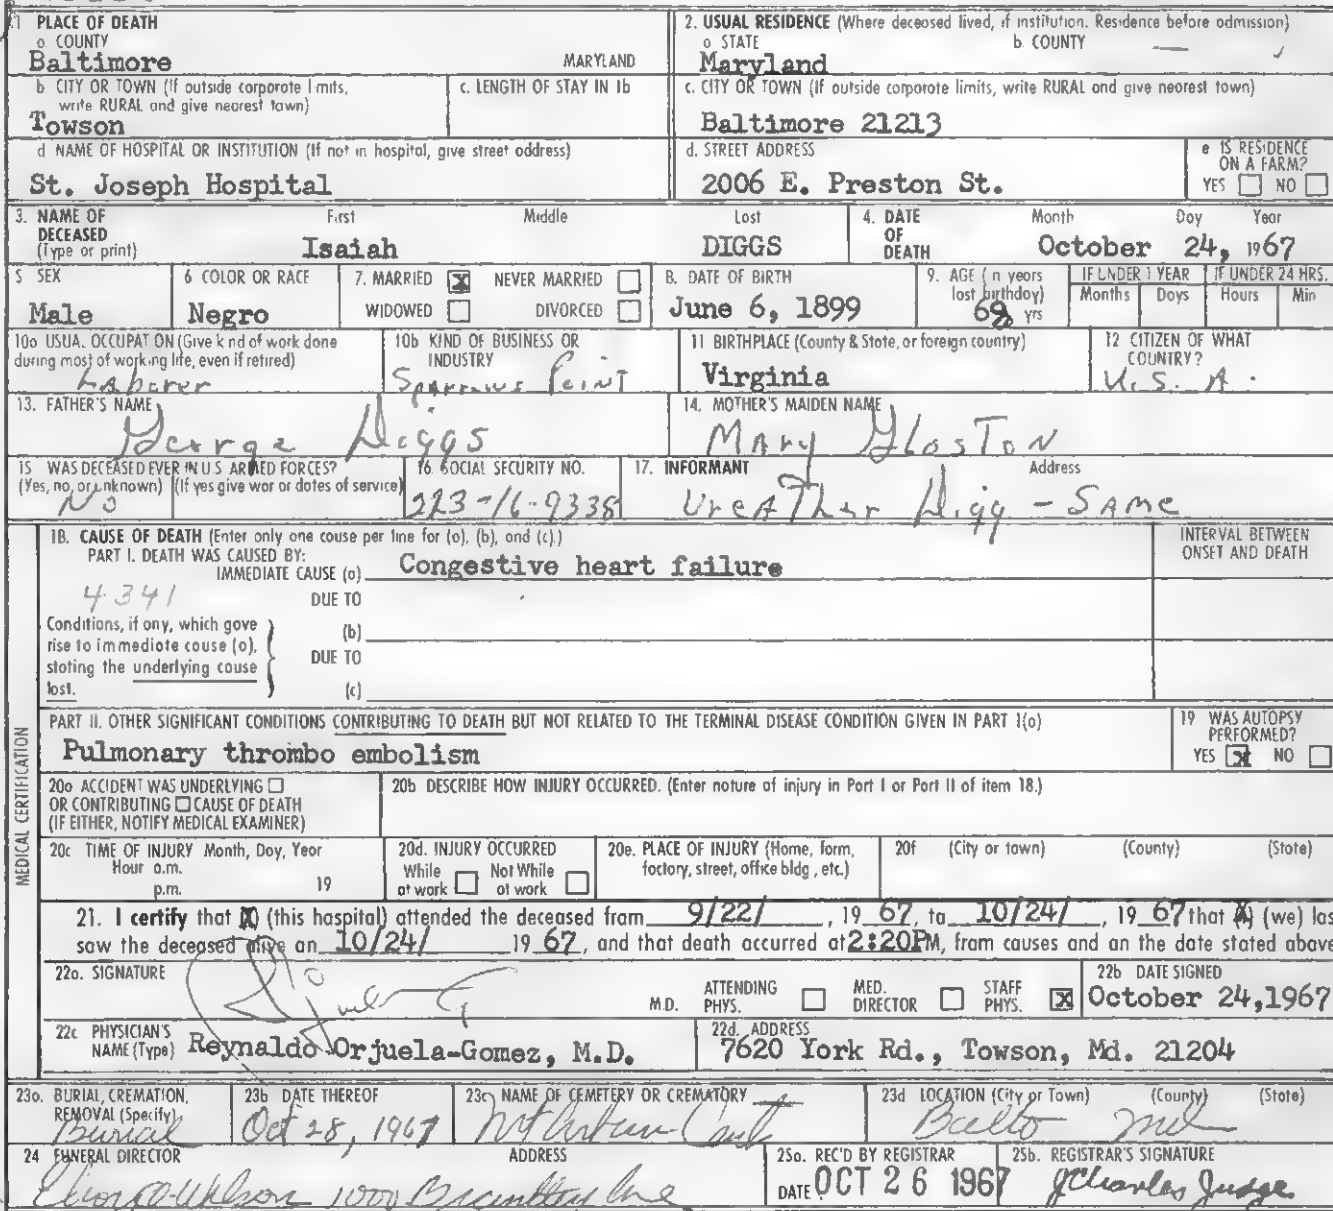 1 PLACE OF DEATH
a. COUNTY
Baltimore MARYLAND
2. USUAL RESIDENCE (Where deceased lived, if institution. Residence before admission)
a. STATE b. COUNTY
Maryland —
b CITY OR TOWN (If outside corporate limits, write RURAL and give nearest town)
Towson
c. LENGTH OF STAY IN 1b
c. CITY OR TOWN (If outside corporate limits, write RURAL and give nearest town)
Baltimore 21213
d NAME OF HOSPITAL OR INSTITUTION (If not in hospital, give street address)
St. Joseph Hospital
d. STREET ADDRESS
2006 E. Preston St.
e IS RESIDENCE ON A FARM?
YES NO
3. NAME OF DECEASED (Type or print)
First Middle Last
Isaiah DIGGS
4. DATE OF DEATH
Month Day Year
October 24, 1967
5 SEX
Male
6 COLOR OR RACE
Negro
7. MARRIED X NEVER MARRIED
WIDOWED DIVORCED
8. DATE OF BIRTH
June 6, 1899
9. AGE (In years last birthday)
68 yrs
IF UNDER 1 YEAR
Months Days
IF UNDER 24 HRS.
Hours Min
10a USUAL OCCUPATION (Give kind of work done during most of working life, even if retired)
Laborer
10b KIND OF BUSINESS OR INDUSTRY
Sparrows Point
11 BIRTHPLACE (County & State, or foreign country)
Virginia
12 CITIZEN OF WHAT COUNTRY?
U.S.A.
13. FATHER'S NAME
George Diggs
14. MOTHER'S MAIDEN NAME
Mary Gloston
15 WAS DECEASED EVER IN U.S. ARMED FORCES?
(Yes, no, or unknown) (If yes give war or dates of service)
No
16 SOCIAL SECURITY NO.
223-16-9338
17. INFORMANT Address
Ureather Digg - Same
MEDICAL CERTIFICATION
18. CAUSE OF DEATH (Enter only one cause per line for (a), (b), and (c).)
INTERVAL BETWEEN ONSET AND DEATH
PART I. DEATH WAS CAUSED BY:
IMMEDIATE CAUSE (a) Congestive heart failure
4341
DUE TO
Conditions, if any, which gave rise to immediate cause (a), stating the underlying cause last.
(b)
DUE TO
(c)
PART II. OTHER SIGNIFICANT CONDITIONS CONTRIBUTING TO DEATH BUT NOT RELATED TO THE TERMINAL DISEASE CONDITION GIVEN IN PART I(a)
Pulmonary thrombo embolism
19 WAS AUTOPSY PERFORMED?
YES X NO
20a ACCIDENT WAS UNDERLYING
OR CONTRIBUTING CAUSE OF DEATH
(IF EITHER, NOTIFY MEDICAL EXAMINER)
20b DESCRIBE HOW INJURY OCCURRED. (Enter nature of injury in Part I or Part II of item 18.)
20c TIME OF INJURY Month, Day, Year
Hour a.m.
p.m. 19
20d. INJURY OCCURRED
While at work Not While at work
20e. PLACE OF INJURY (Home, farm, factory, street, office bldg, etc.)
20f (City or town) (County) (State)
21. I certify that (X) (this hospital) attended the deceased from 9/22/, 1967, to 10/24/, 1967 that (X) (we) las
saw the deceased alive on 10/24/ 1967, and that death occurred at 2:20PM, from causes and on the date stated above
22a. SIGNATURE
M.D. ATTENDING PHYS. MED. DIRECTOR STAFF PHYS. X
22b DATE SIGNED
October 24,1967
22c PHYSICIAN'S NAME (Type)
Reynaldo Orjuela-Gomez, M.D.
22d. ADDRESS
7620 York Rd., Towson, Md. 21204
23a. BURIAL, CREMATION, REMOVAL (Specify)
Burial
23b DATE THEREOF
Oct 28, 1967
23c NAME OF CEMETERY OR CREMATORY
Mt Auburn
23d LOCATION (City or Town) (County) (State)
Balto Md
24 FUNERAL DIRECTOR ADDRESS
Wilson 1000 Brantley Ave
25a. REC'D BY REGISTRAR
DATE OCT 26 1967
25b. REGISTRAR'S SIGNATURE
J Charles Judge